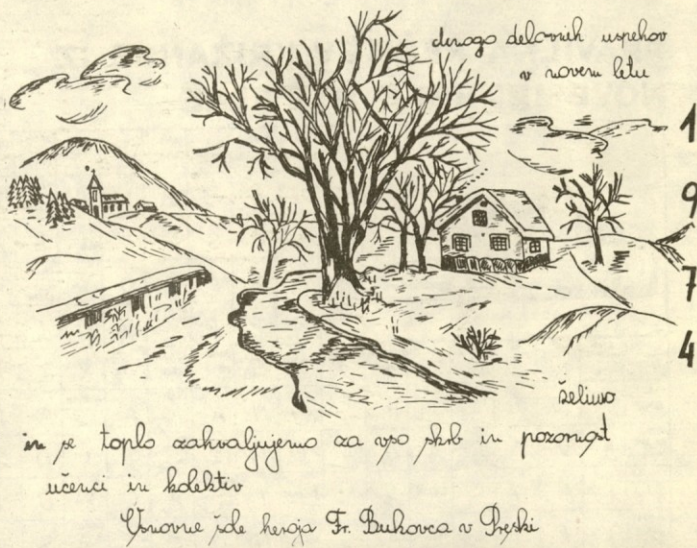 mnogo delovnih uspehov
v novem letu
1
9
7
4
želimo
in se toplo zahvaljujemo za vso skrb in pozornost
učenci in kolektiv
Osnovne šole heroja Fr. Bukovca v Preski